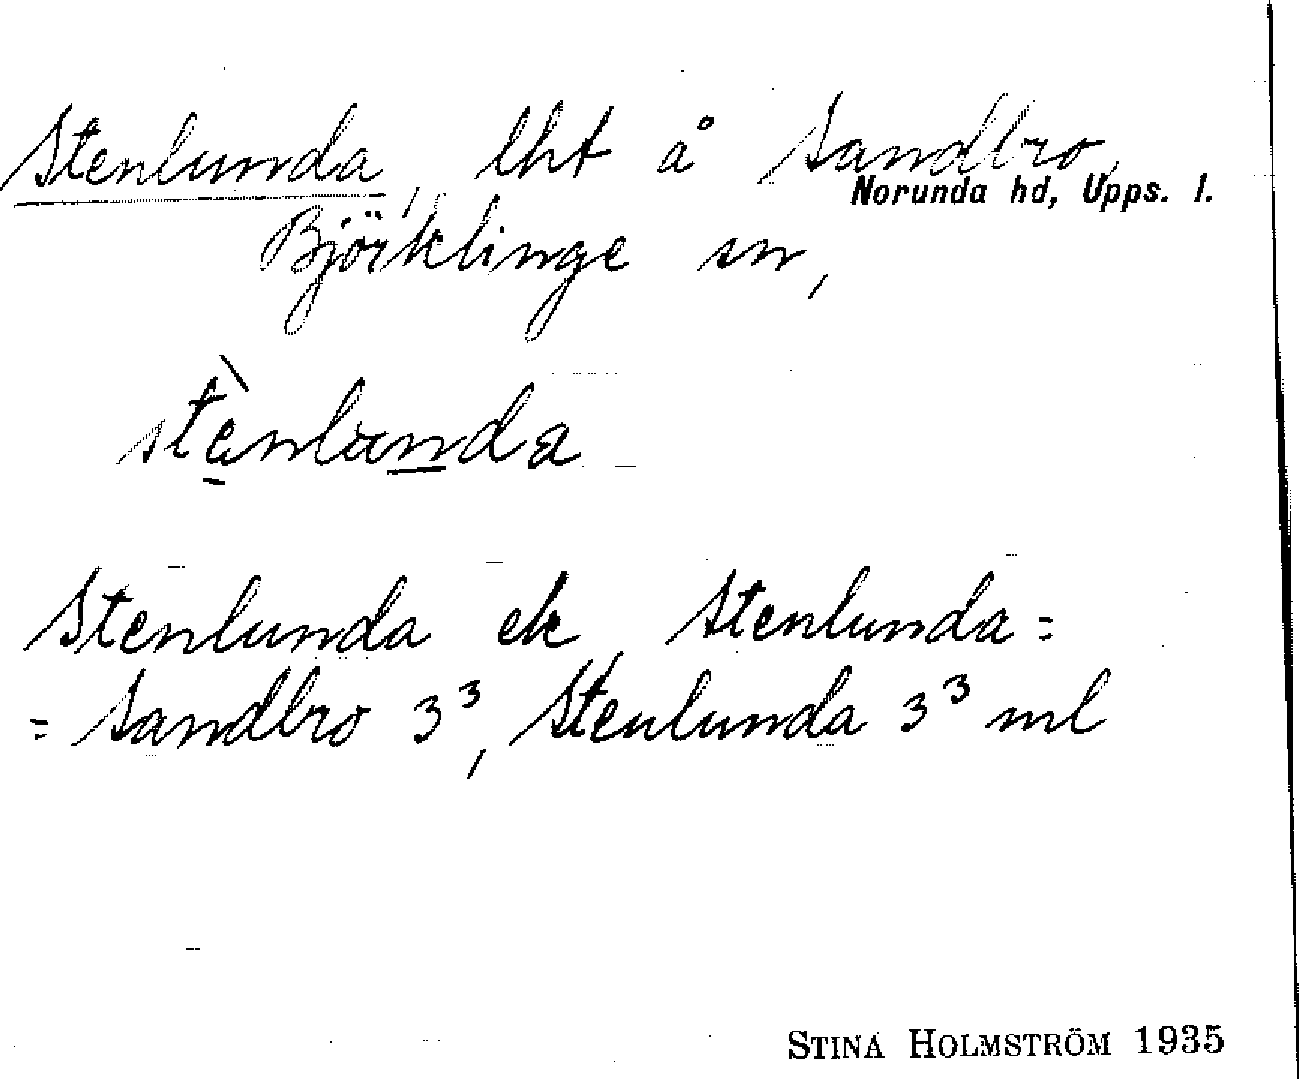 Stenlunda, lht å Sandbro,
Norunda hd, Upps. l.
Björklinge sn,
stènlunda
Stenlunda ek, Stenlunda=
=Sandbro 3³, Stenlunda 3³ ml
STINA HOLMSTRÖM 1935